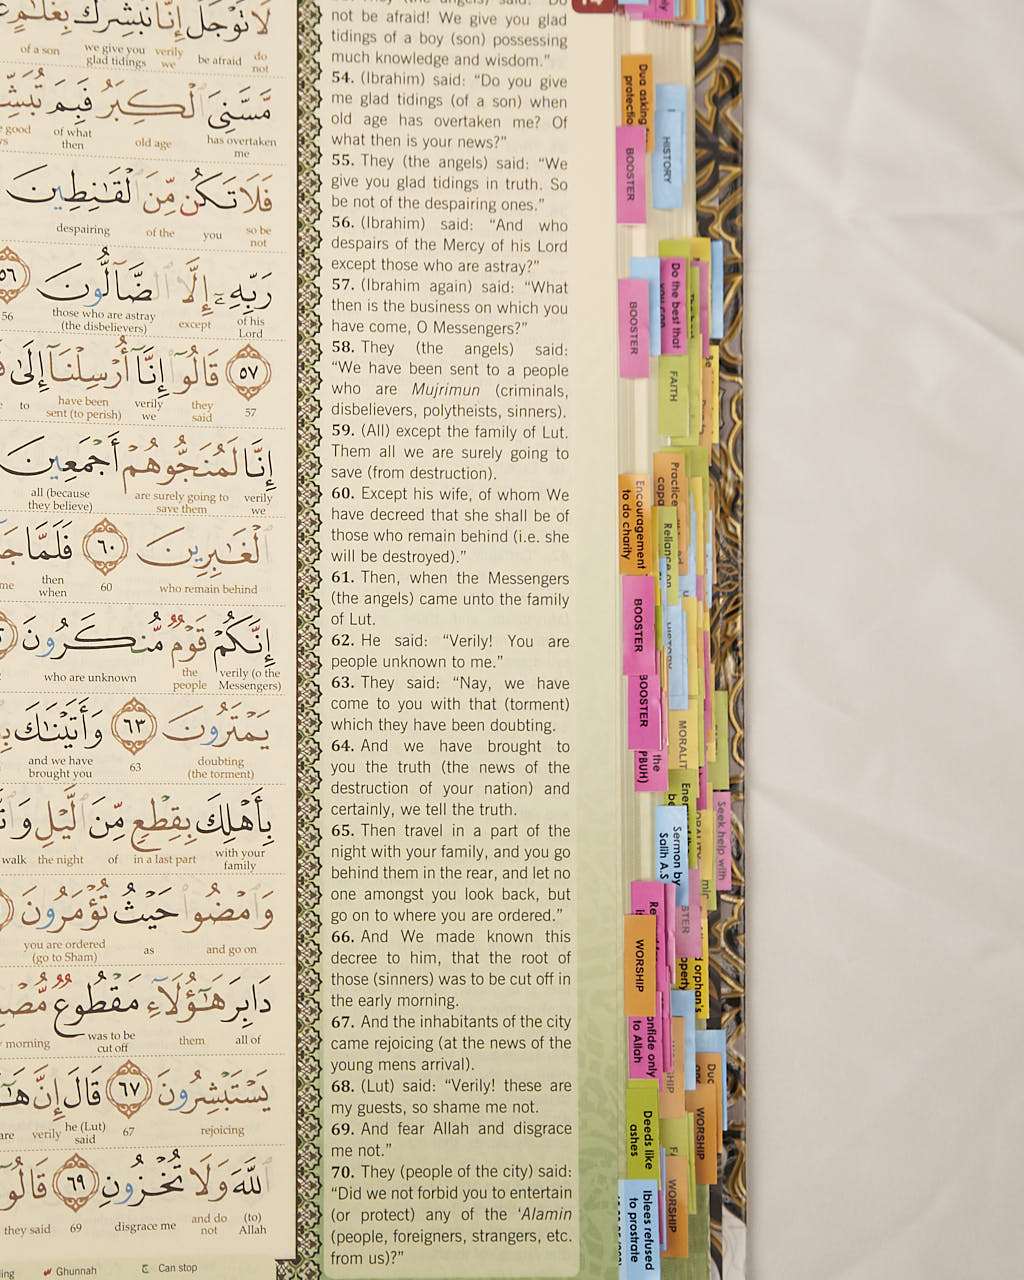 of a son we give you glad tidings verily we be afraid do not
مَّسَّنِيَ الْكِبَرُ فَبِمَ
of what then old age has overtaken me
فَلَا تَكُن مِّنَ الْقَٰنِطِينَ
despairing of the you so be not
رَبِّهِۦٓ إِلَّا الضَّآلُّونَ ٥٦
56 those who are astray (the disbelievers) except of his Lord
٥٧ قَالُوٓا إِنَّآ أُرْسِلْنَآ إِلَىٰ
to have been sent (to perish) verily we they said 57
إِنَّا لَمُنَجُّوهُمْ أَجْمَعِينَ
all (because they believe) are surely going to save them verily we
الْغَٰبِرِينَ ٦٠ فَلَمَّا
then when 60 who remain behind
إِنَّكُمْ قَوْمٌ مُّنكَرُونَ
who are unknown the people verily (o the Messengers)
يَمْتَرُونَ ٦٣ وَأَتَيْنَٰكَ
and we have brought you 63 doubting (the torment)
بِأَهْلِكَ بِقِطْعٍ مِّنَ الَّيْلِ
walk the night of in a last part with your family
وَامْضُوا حَيْثُ تُؤْمَرُونَ
you are ordered (go to Sham) as and go on
دَابِرَ هَٰٓؤُلَآءِ مَقْطُوعٌ
morning was to be cut off them all of
يَسْتَبْشِرُونَ ٦٧ قَالَ إِنَّ
are verily he (Lut) said 67 rejoicing
اللَّهَ وَلَا تُخْزُونِ ٦٩
they said 69 disgrace me and do not (to) Allah
Ghunnah Can stop
not be afraid! We give you glad
tidings of a boy (son) possessing
much knowledge and wisdom.”
54. (Ibrahim) said: “Do you give
me glad tidings (of a son) when
old age has overtaken me? Of
what then is your news?”
55. They (the angels) said: “We
give you glad tidings in truth. So
be not of the despairing ones.”
56. (Ibrahim) said: “And who
despairs of the Mercy of his Lord
except those who are astray?”
57. (Ibrahim again) said: “What
then is the business on which you
have come, O Messengers?”
58. They (the angels) said:
“We have been sent to a people
who are Mujrimun (criminals,
disbelievers, polytheists, sinners).
59. (All) except the family of Lut.
Them all we are surely going to
save (from destruction).
60. Except his wife, of whom We
have decreed that she shall be of
those who remain behind (i.e. she
will be destroyed).”
61. Then, when the Messengers
(the angels) came unto the family
of Lut.
62. He said: “Verily! You are
people unknown to me.”
63. They said: “Nay, we have
come to you with that (torment)
which they have been doubting.
64. And we have brought to
you the truth (the news of the
destruction of your nation) and
certainly, we tell the truth.
65. Then travel in a part of the
night with your family, and you go
behind them in the rear, and let no
one amongst you look back, but
go on to where you are ordered.”
66. And We made known this
decree to him, that the root of
those (sinners) was to be cut off in
the early morning.
67. And the inhabitants of the city
came rejoicing (at the news of the
young mens arrival).
68. (Lut) said: “Verily! these are
my guests, so shame me not.
69. And fear Allah and disgrace
me not.”
70. They (people of the city) said:
“Did we not forbid you to entertain
(or protect) any of the ‘Alamin
(people, foreigners, strangers, etc.
from us)?”
Dua asking
HISTORY
BOOSTER
Do the best that
BOOSTER
FAITH
Practice
Encouragement
to do charity
Reliance on
BOOSTER
HISTORY
BOOSTER
the
PBUH)
Seek help with
Sermon by
Salih A.S
WORSHIP
orphan's
to Allah
WORSHIP
Deeds like
ashes
WORSHIP
Iblees refused
to prostrate